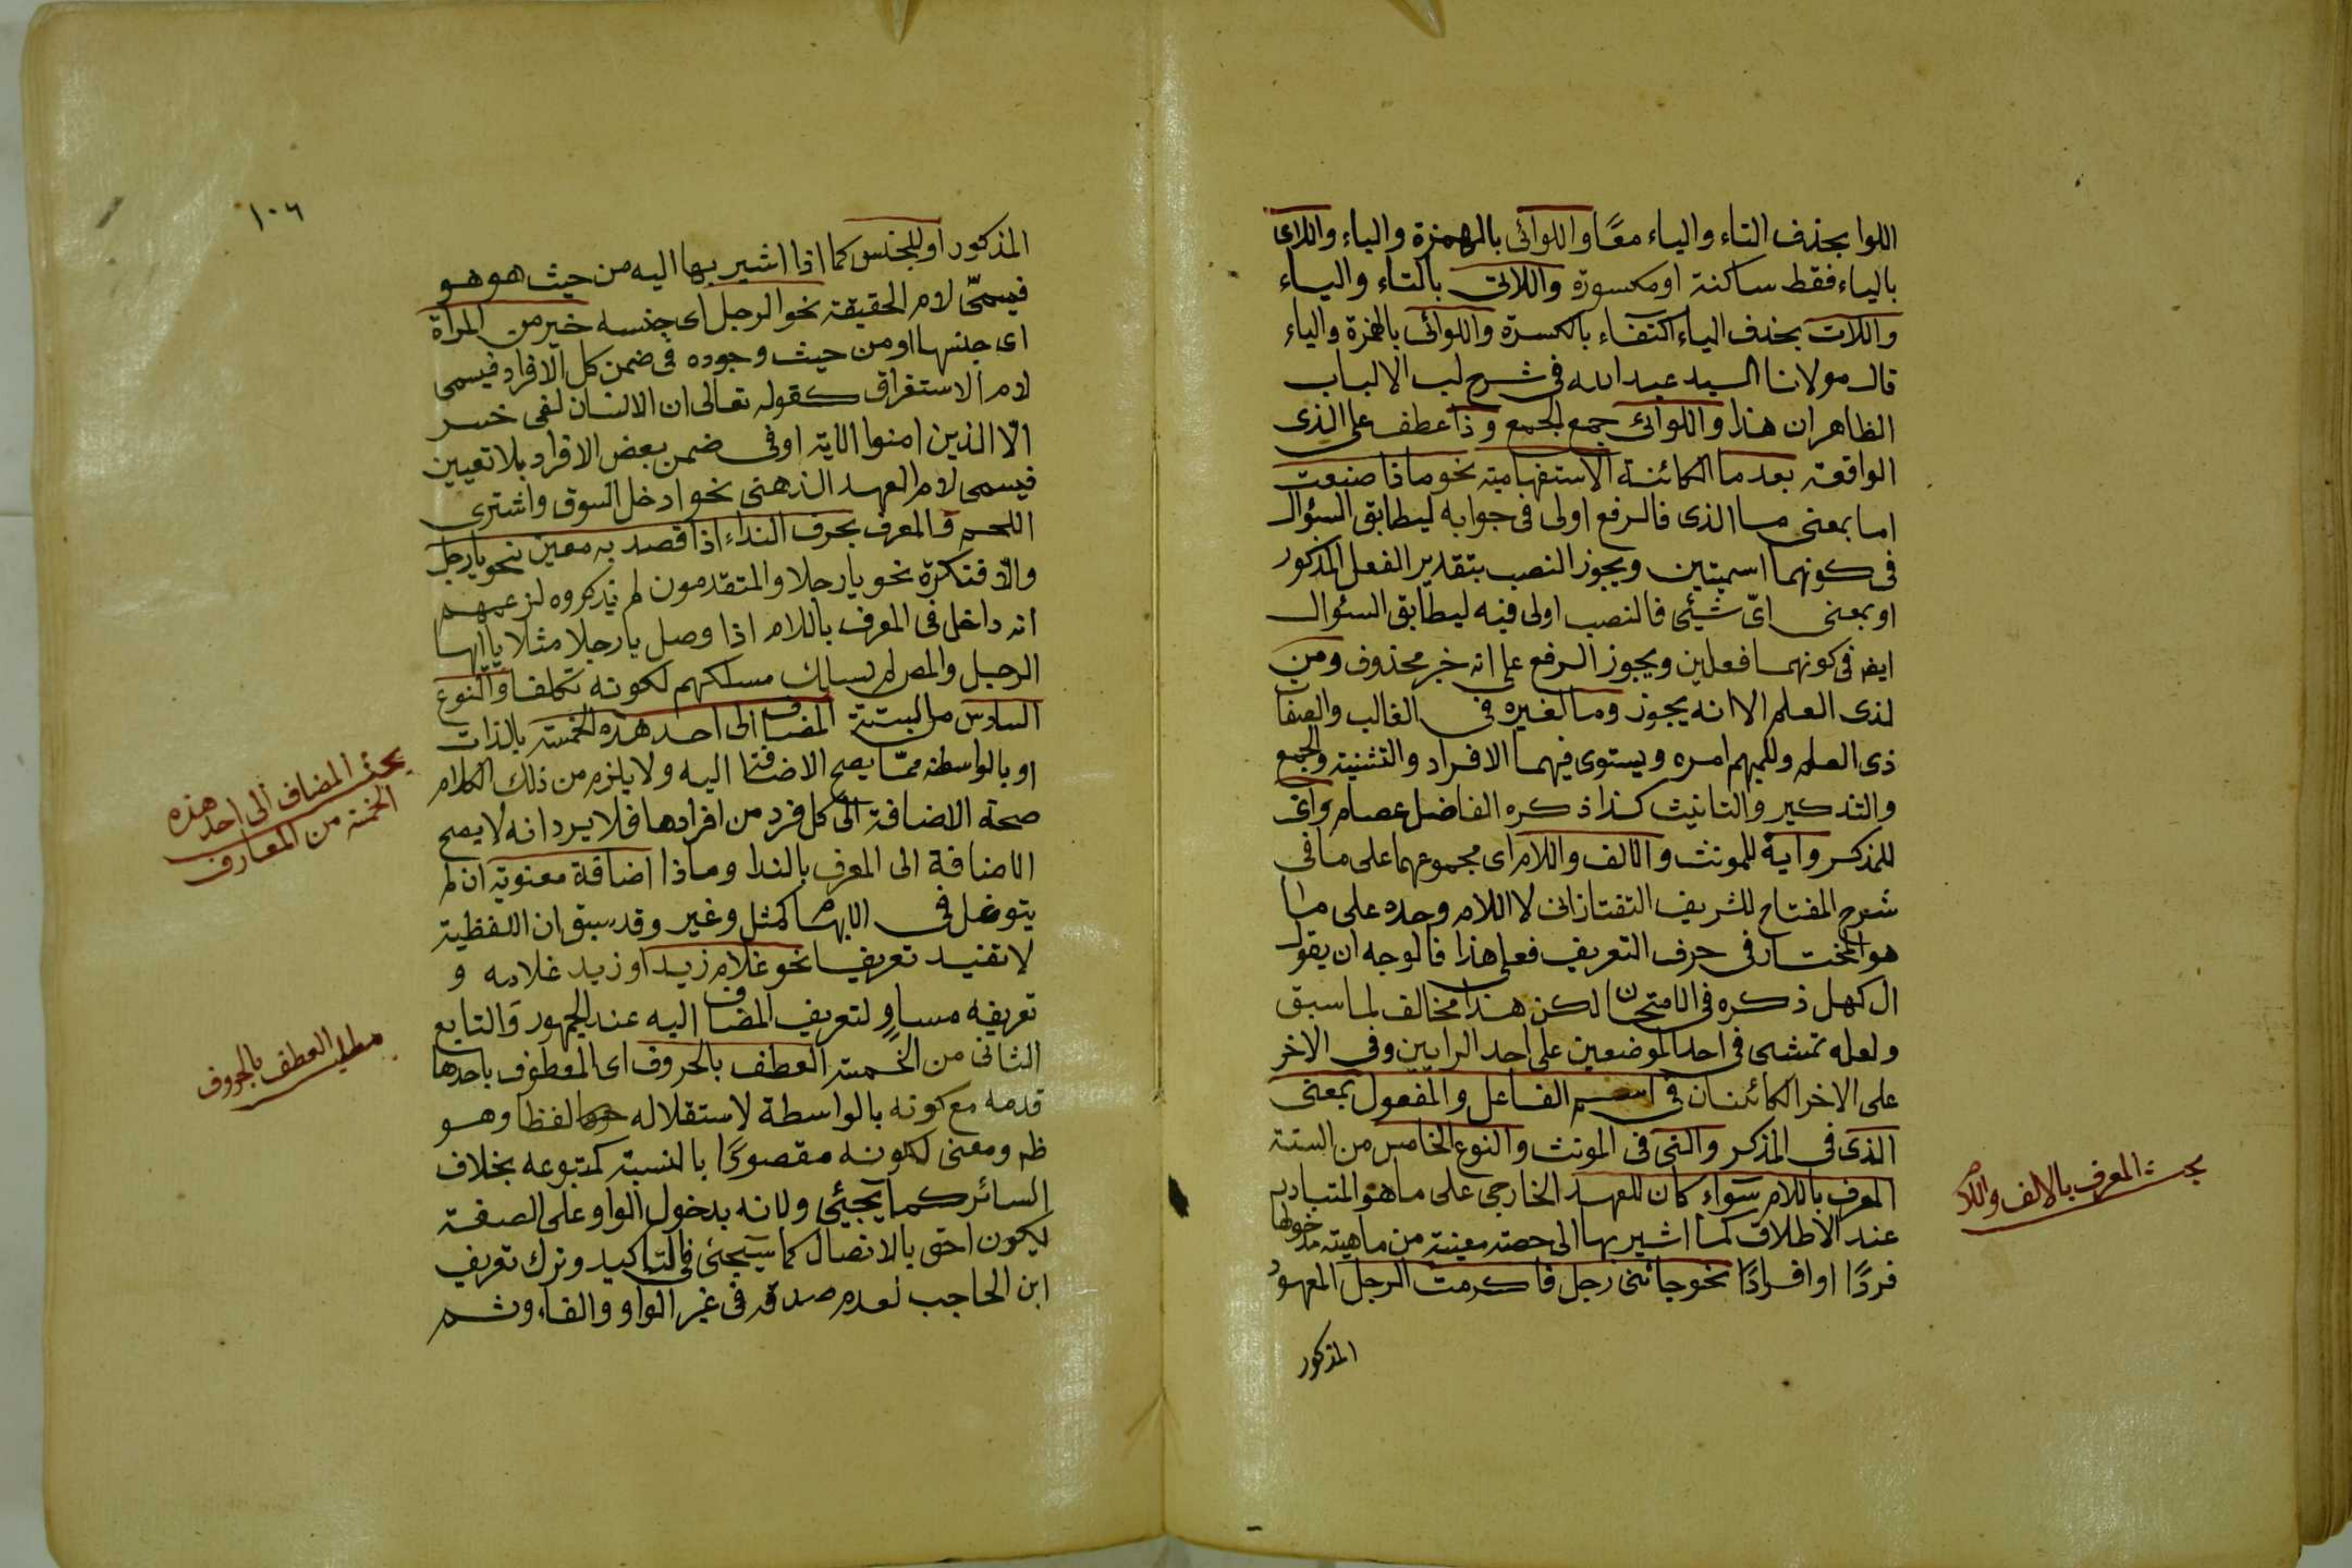 اللوا بحذف التاء والياء معًا واللوائى بالهمزة والياء واللاى
بالياء فقط ساكنة او مكسورة واللاتى بالتاء والياء
واللات بحذف الياء اكتفاء بالكسرة واللوائى بالهمزة والياء
قال مولانا السيد عبد الله فى شرح لب الالباب
الظاهر ان هذا واللوائى جمع الجمع وذا عطف على الذى
الواقعة بعد ما الكائنة الاستفهامية نحو ماذا صنعت
اما بمعنى ما الذى فالرفع اولى فى جوابه ليطابق السؤال
فى كونهما اسميتين ويجوز النصب بتقدير الفعل المذكور
او بمعنى اىّ شيئى فالنصب اولى فيه ليطابق السئوال
ايضا فى كونهما فعلين ويجوز الرفع على انه خبر محذوف ومن
لذى العلم الا انه يجوز وما لغيره فى الغالب والصفا
ذى العلم وللمبهم امره ويستوى فيهما الافراد والتثنية والجمع
والتذكير والتانيث كذا ذكره الفاضل عصام واى
للمذكر واية للمونث والالف واللام اى مجموعهما على ما فى
شرح المفتاح للشريف التفتازانى لا اللام وحده على ما
هو المختار فى حرف التعريف فعلى هذا فالوجه ان يقول
ال كهل ذكره فى الامتحان لكن هذا مخالف لما سبق
ولعله تمشى فى احد الموضعين على احد الرايين وفى الاخر
على الاخر الكائنان فى اسم الفاعل والمفعول بمعنى
الذى فى المذكر والتى فى المونث والنوع الخامس من الستة
المعرف باللام سواء كان للعهد الخارجى على ما هو المتبادر
عند الاطلاق كما اشير بها الى حصة معينة من ماهية مدخولها
فردًا او افرادًا نحو جائنى رجل فاكرمت الرجل المعهود
المذكور
بحث المعرف بالالف واللام
١٠٦
المذكور او للجنس كما اذا اشير بها اليه من حيث هو هو
فيسمّى لام الحقيقة نحو الرجل اى جنسه خير من المرأة
اى جنسها او من حيث وجوده فى ضمن كل الافراد فيسمى
لام الاستغراق كقوله تعالى ان الانسان لفى خسر
الّا الذين امنوا الاية او فى ضمن بعض الافراد بلا تعيين
فيسمى لام العهد الذهنى نحو ادخل السوق واشترى
اللحم والمعرف بحرف النداء اذا قصد به معين نحو يا رجل
والّا فنكرة نحو يا رجلا والمتقدمون لم يذكروه لزعمهم
انه داخل فى المعرف باللام اذا وصل يا رجلا مثلا يا ايها
الرجل والمص لم يسلك مسلكهم لكونه تكلفا والنوع
السادس من الستة المضاف الى احد هذه الخمسة بالذات
او بالواسطة ممّا يصح الاضافة اليه ولا يلزم من ذلك الكلام
صحة الاضافة الى كل فرد من افرادها فلا يرد انه لا يصح
الاضافة الى المعرف بالندا وماذا اضافة معنوية ان لم
يتوغل فى الابهام كمثل وغير وقد سبق ان اللفظية
لا تفيد تعريفا نحو غلام زيد او زيد غلامه و
تعريفه مساوٍ لتعريف المضاف اليه عند الجمهور والتابع
الثانى من الخمسة العطف بالحروف اى المعطوف باحدها
قدمه مع كونه بالواسطة لاستقلاله لفظا وهو
ظم ومعنى لكونه مقصودًا بالنسبة كمتبوعه بخلاف
السائر كما يجيئى ولانه بدخول الواو على الصفة
ليكون احق بالاتصال كما سيجئى فى التاكيد وترك تعريف
ابن الحاجب لعدم صدقه فى غير الواو والفاء وثم
بحث المضاف الى احد هذه
الخمسة من المعارف
مطلب العطف بالحروف